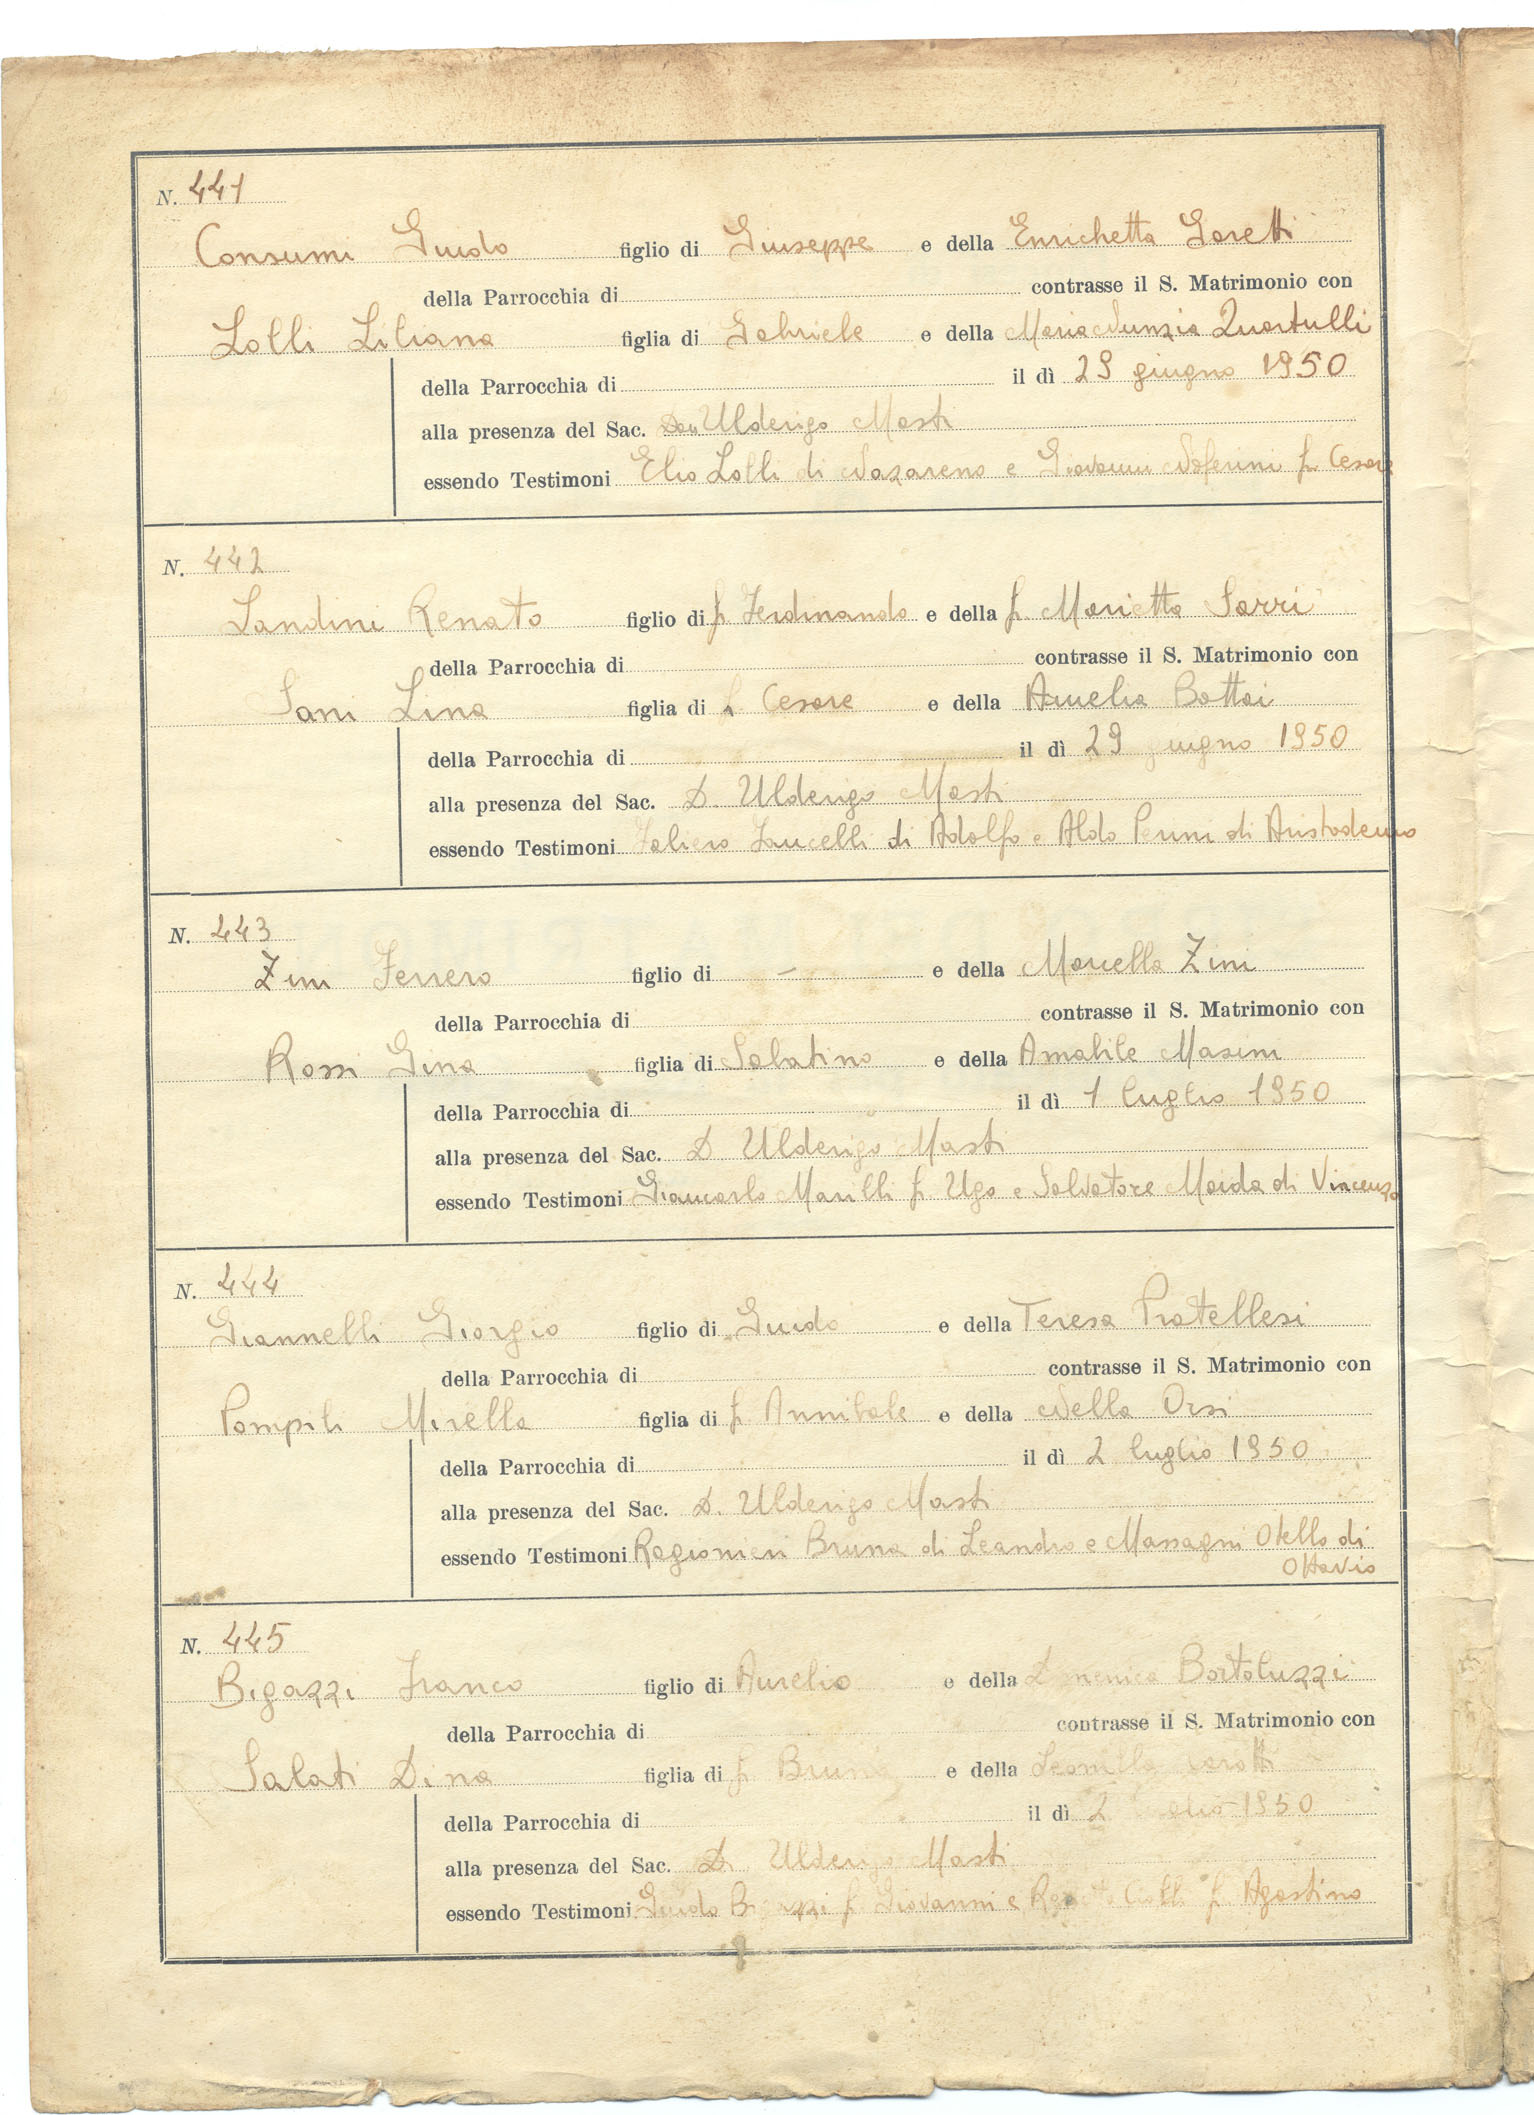 N. 441
Consumi Guido figlio di Giuseppe e della Enrichetta Goretti
della Parrocchia di contrasse il S. Matrimonio con
Lolli Liliana figlia di Gabriele e della Maria Nunzia Quartulli
della Parrocchia di il dì 29 giugno 1950
alla presenza del Sac. Don Ulderigo Masti
essendo Testimoni Elio Lolli di Nazareno e Giovanni Noferini f. Cesare
N. 442
Landini Renato figlio di f. Ferdinando e della f. Marietta Sarri
della Parrocchia di contrasse il S. Matrimonio con
Sani Lina figlia di f. Cesare e della Amelia Bottai
della Parrocchia di il dì 29 giugno 1950
alla presenza del Sac. D. Ulderigo Masti
essendo Testimoni Faliero di Adolfo e Aldo di Aristodemo
N. 443
Zini Ferrero figlio di - e della Marcella Zini
della Parrocchia di contrasse il S. Matrimonio con
Rossi Gina figlia di Sabatino e della Amabile Masini
della Parrocchia di il dì 1 luglio 1950
alla presenza del Sac. D. Ulderigo Masti
essendo Testimoni Giancarlo f. Ugo e Salvatore Maida di Vincenzo
N. 444
Giannelli Giorgio figlio di Guido e della Teresa Pratellesi
della Parrocchia di contrasse il S. Matrimonio con
Pompili Mirella figlia di f. Annibale e della Nella Orsi
della Parrocchia di il dì 2 luglio 1950
alla presenza del Sac. D. Ulderigo Masti
essendo Testimoni Ragionieri Bruna di Leandro e Massagni Otello di
Ottavio
N. 445
Bigazzi Franco figlio di Aurelio e della Domenica Bortoluzzi
della Parrocchia di contrasse il S. Matrimonio con
Salati Dina figlia di f. Bruno e della Leonilla
della Parrocchia di il dì 2 luglio 1950
alla presenza del Sac. D. Ulderigo Masti
essendo Testimoni Guido Bigazzi f. Giovanni e f. Agostino